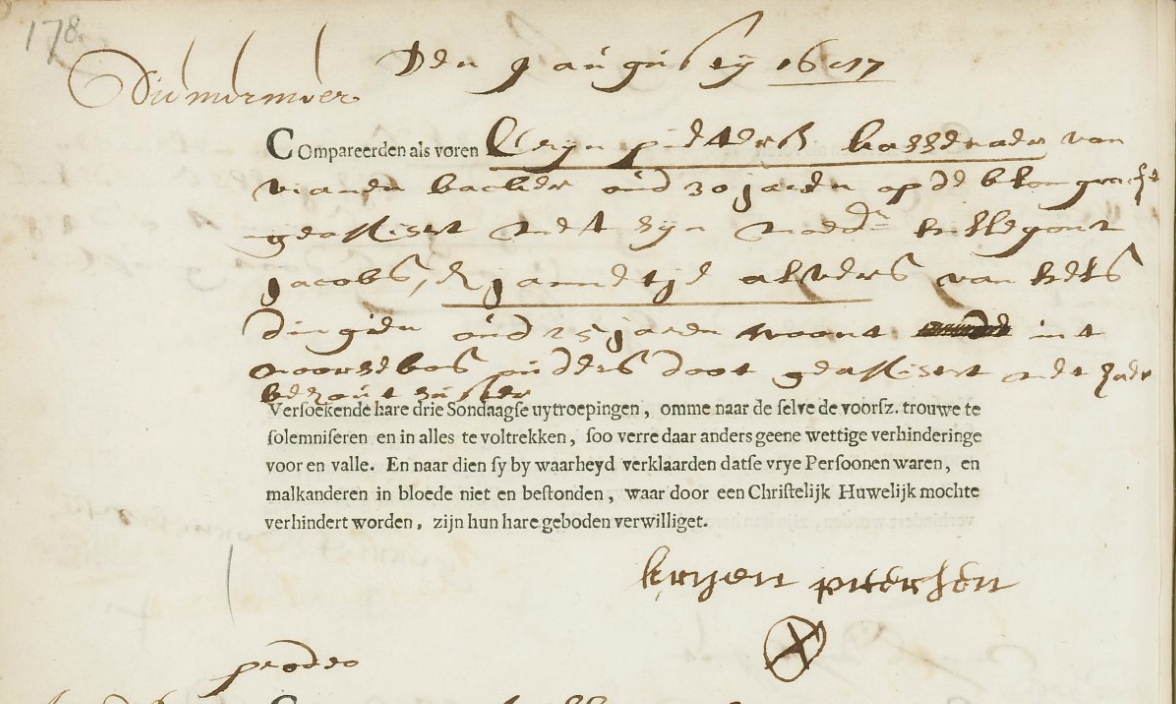 178.
Den 9 augusty 1647
Diemermeer
Compareerden als voren Cryn pieters van
vianen backer oud 30 jaren op de
geassisteert met zyn moeder hillegont
Jacobs, & Jannetje van
dingien oud 25 jaren woont int
ouders doot geassisteert met haer
suster
Versoekende hare drie Sondaagse uytroepingen, omme naar de selve de voorsz. trouwe te
solemniseren en in alles te voltrekken, soo verre daar anders geene wettige verhinderinge
voor en valle. En naar dien sy by waarheyd verklaarden datse vrye Persoonen waren, en
malkanderen in bloede niet en bestonden, waar door een Christelijk Huwelijk mochte
verhindert worden, zijn hun hare geboden verwilliget.
kryen pietersen
prodeo